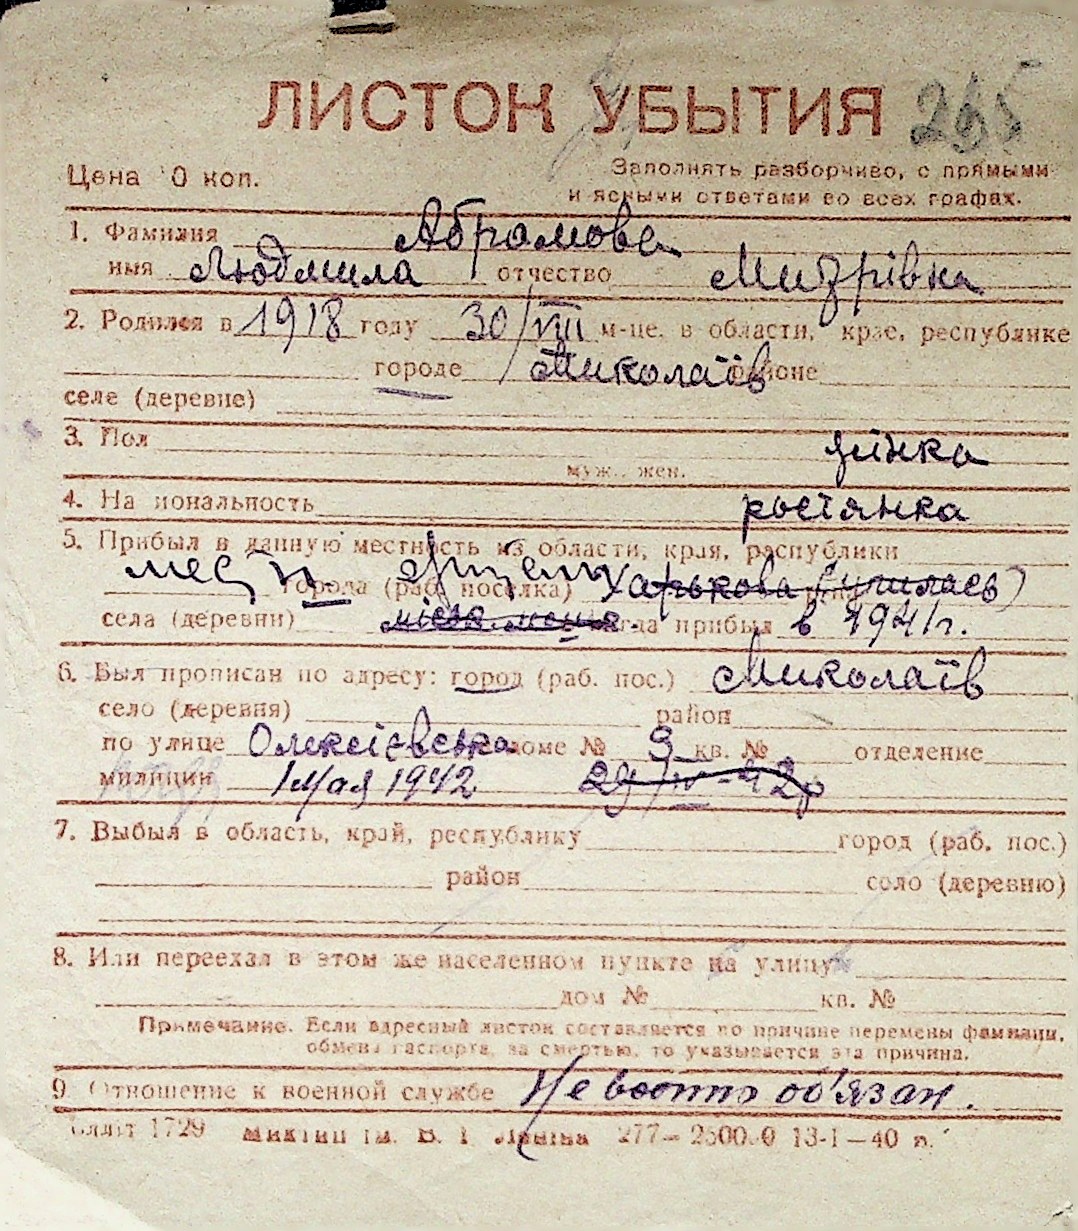 ЛИСТОК УБЫТИЯ 265
Цена 10 коп. Заполнять разборчиво, с прямыми
и ясными ответами во всех графах.
1. Фамилия Абрамова
имя Людмила отчество
2. Родился в 1918 году 30/VIII м-це. в области, крае, республике
городе Миколаїв районе
селе (деревне)
3. Пол жінка
муж., жен.
4. Национальность росіянка
5. Прибыл в данную местность из области, края, республики
города (раб. поселка) Харькова
села (деревни) когда прибыл в 1941 г.
6. Был прописан по адресу: город (раб. пос.) Миколаїв
село (деревня) район
по улице Олексіевська доме № 9 кв. № отделение
милиции 1 Мая 1942 29/IV-42р
7. Выбыл в область, край, республику город (раб. пос.)
район село (деревню)
8. Или переехал в этом же населенном пункте на улицу
дом № кв. №
Примечание. Если адресный листок составляется по причине перемены фамилии,
обмена паспорта, за смертью, то указывается эта причина.
9. Отношение к военной службе Не воєнно об'язан.
1729 ім. В. І. Леніна 277— 13-I—40 р.